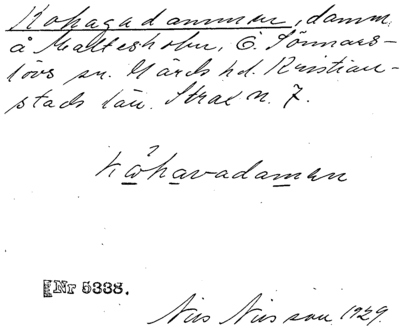 Kohagadammen, damm
å Maltesholm, Ö. Sönnars-
lövs sn. Gärds hd. Kristian-
stads län. Strax n. 7.
kǻhavadaman
Nr 5338.
Nils Nilsson 1929.